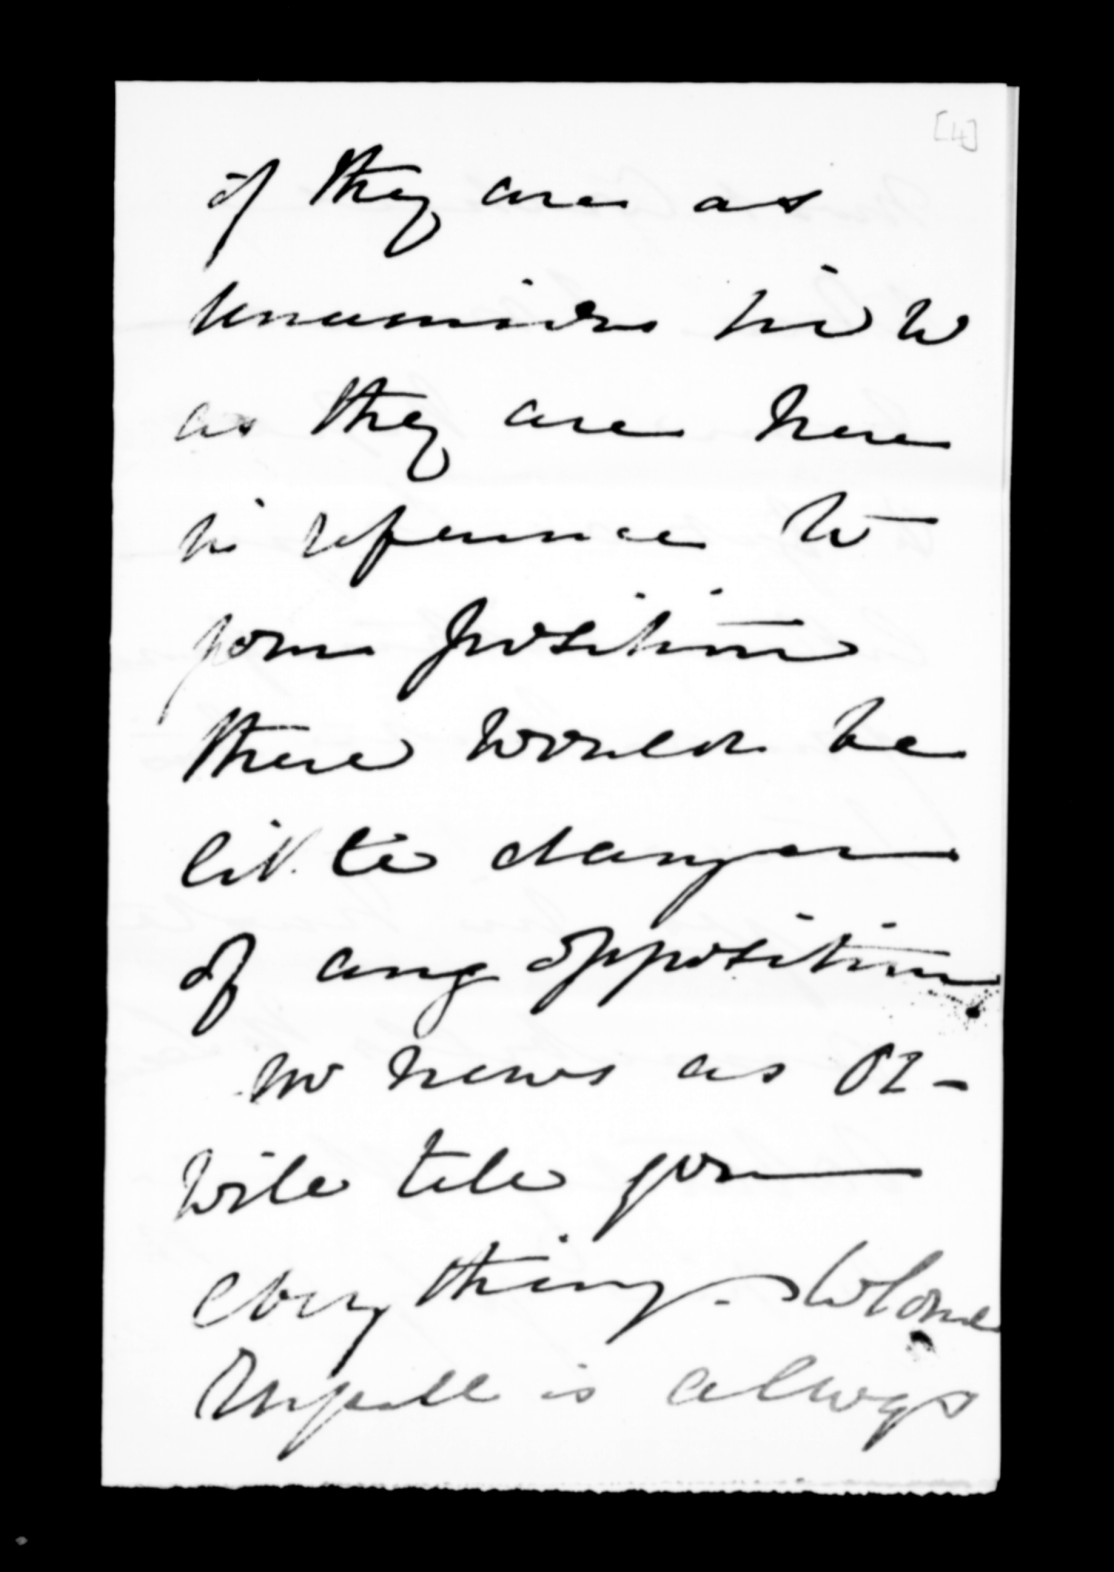 [4]
if they are as
unanimous in W
as they are here
in reference to
your position
there would be
little danger
of any opposition
no news as Ol-
will tell you
every thing.
is always